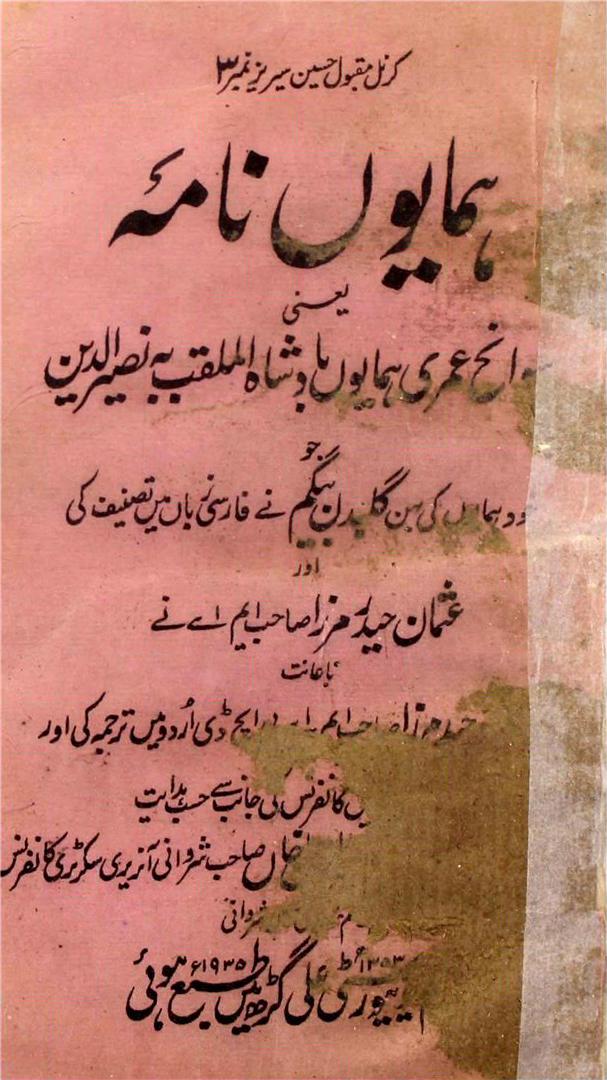 کرنل مقبول حسین سیریز نمبر ۳
ہمایوں نامۂ
یعنی
سوانح عمری ہمایوں بادشاہ الملقب بہ نصیر الدین
جو
ہمایوں کی بہن گلبدن بیگم نے فارسی زبان میں تصنیف کی
اور
عثمان حیدر مرزا صاحب ایم اے نے
باعانت
حیدر مرزا صاحب ایم اے پی ایچ ڈی اُردو میں ترجمہ کی اور
کانفرنس کی جانب سے حسب ہدایت
خاں صاحب شروانی آنریری سکرٹری کانفرنس
شروانی
۱۳۵۳ھ ۱۹۳۵ء
علی گڑھ میں طبع ہوئی